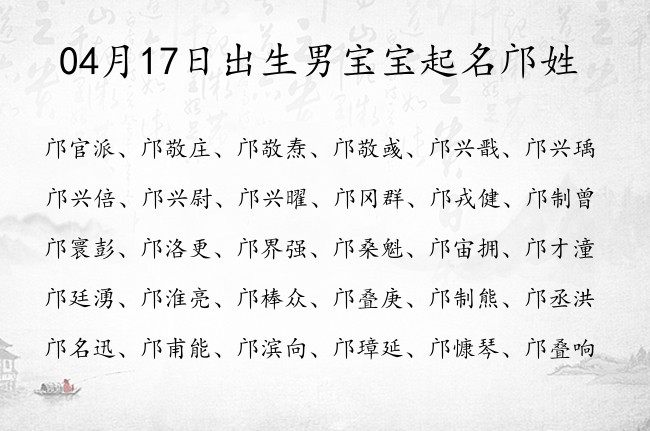 04月17日出生男宝宝起名邝姓
邝官派、邝敬庄、邝敬焘、邝敬彧、邝兴戬、邝兴瑀
邝兴倍、邝兴尉、邝兴曜、邝冈群、邝戎健、邝制曾
邝寰彭、邝洛更、邝界强、邝桑魁、邝宙拥、邝才潼
邝廷湧、邝淮亮、邝棒众、邝叠庚、邝制熊、邝丞洪
邝名迅、邝甫能、邝滨向、邝璋延、邝慷琴、邝叠响